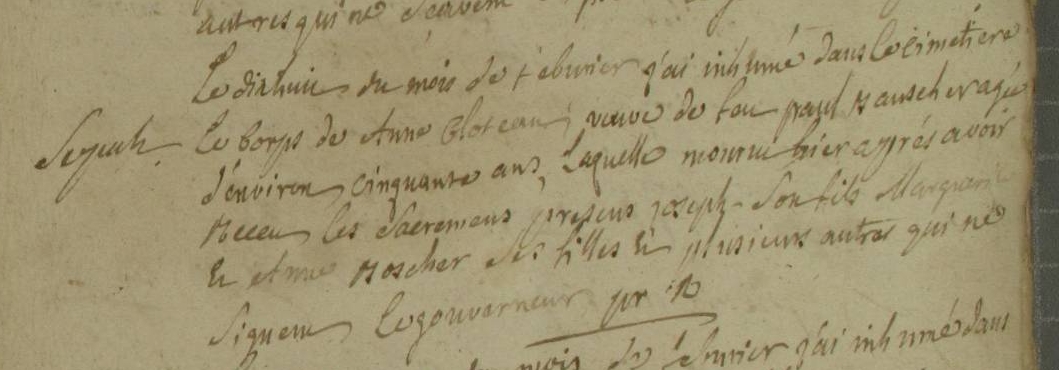 autres qui ne scavent
Le dixhuit du mois de febvrier j'ai inhumé dans le cimetiere
Sepult. le corps de Anne Cloteau, veuve de feu paul Rauscher agée
d'environ cinquante ans, Laquelle mourut hier apprés avoir
Receu les Sacremens presens joseph son fils Marguerite
Et Anne Roscher ses filles Et plusieurs autres qui ne
Signent Legouverneur ptr R
mois de febvrier j'ai inhumé dans